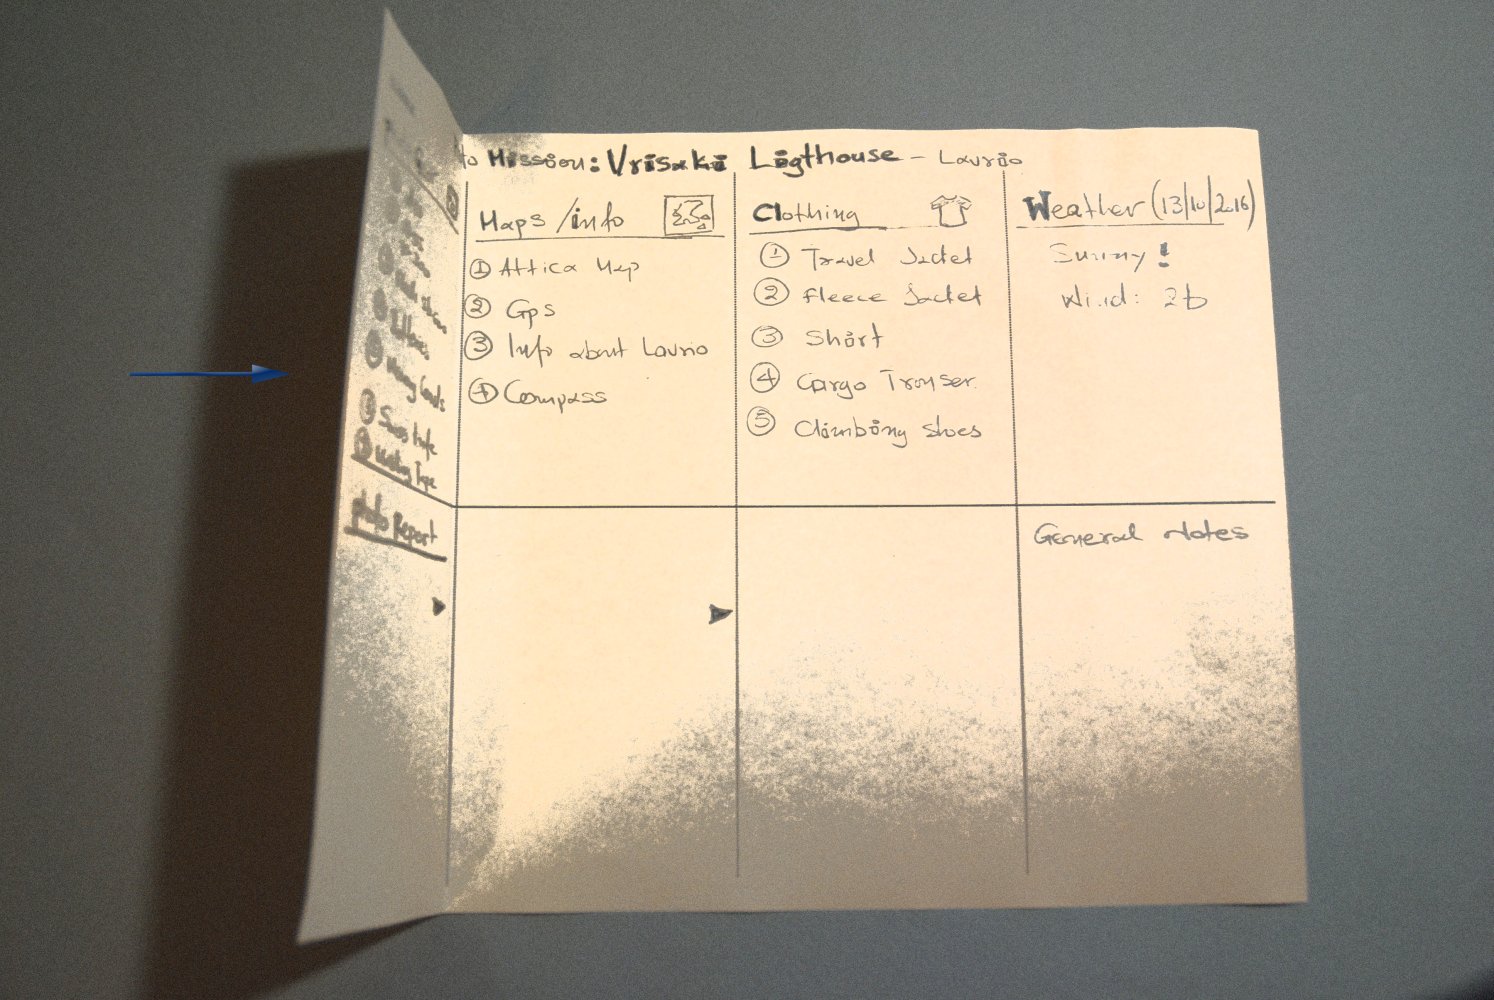 to Mission: Vrisaki Ligthouse - Laurio
Maps/info
① Attica Map
② Gps
③ Info about Laurio
④ Compass
Clothing
① Travel Jacket
② Fleece Jacket
③ Short
④ Cargo Trouser
⑤ Climbing shoes
Weather (13/10/2016)
Sunny!
Wind: 2b
Photo Report
General notes